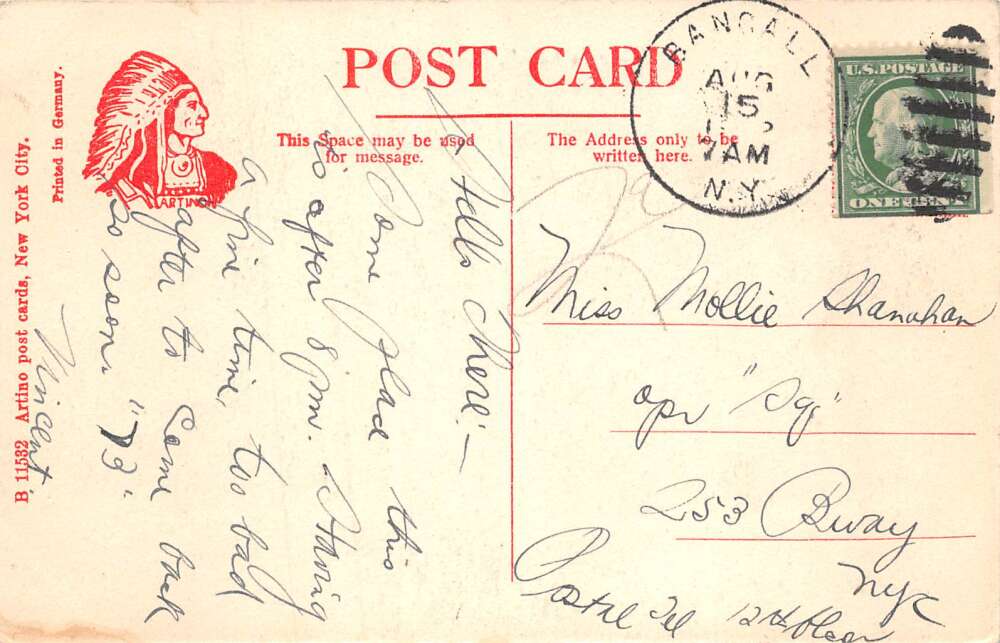 POST CARD
This Space may be used
for message.
The Address only to be
written here.
BANGALL
AUG
15
7 AM
N.Y.
U.S. POSTAGE
ONE CENT
ARTINO
Printed in Germany.
B 11532 Artino post cards, New York City.
Hello There! —
Some place this
is after 8 pm. Having
a fine time, too bad
after to come back
so soon. "73"
Vincent.
Miss Mollie Shanahan
opr "Sq"
253 Bway
NYC
Postal Tel 12th floor